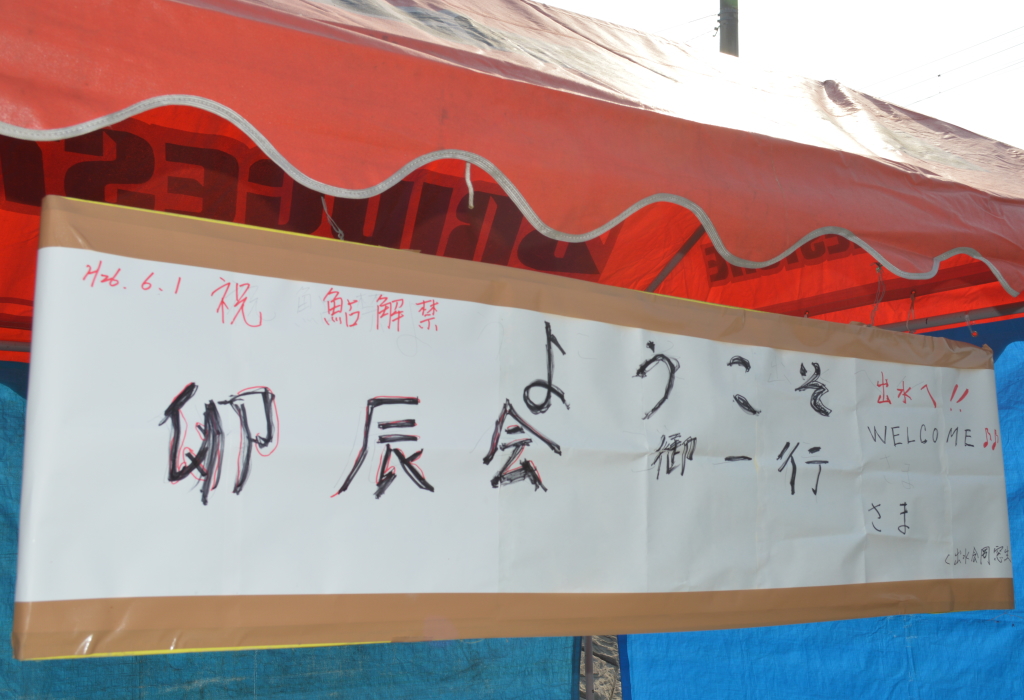 H26.6.1 祝 鮎解禁
ようこそ
卯辰会 御一行
出水へ!!
WELCOME♪♪
さま
BRIDGESTONE